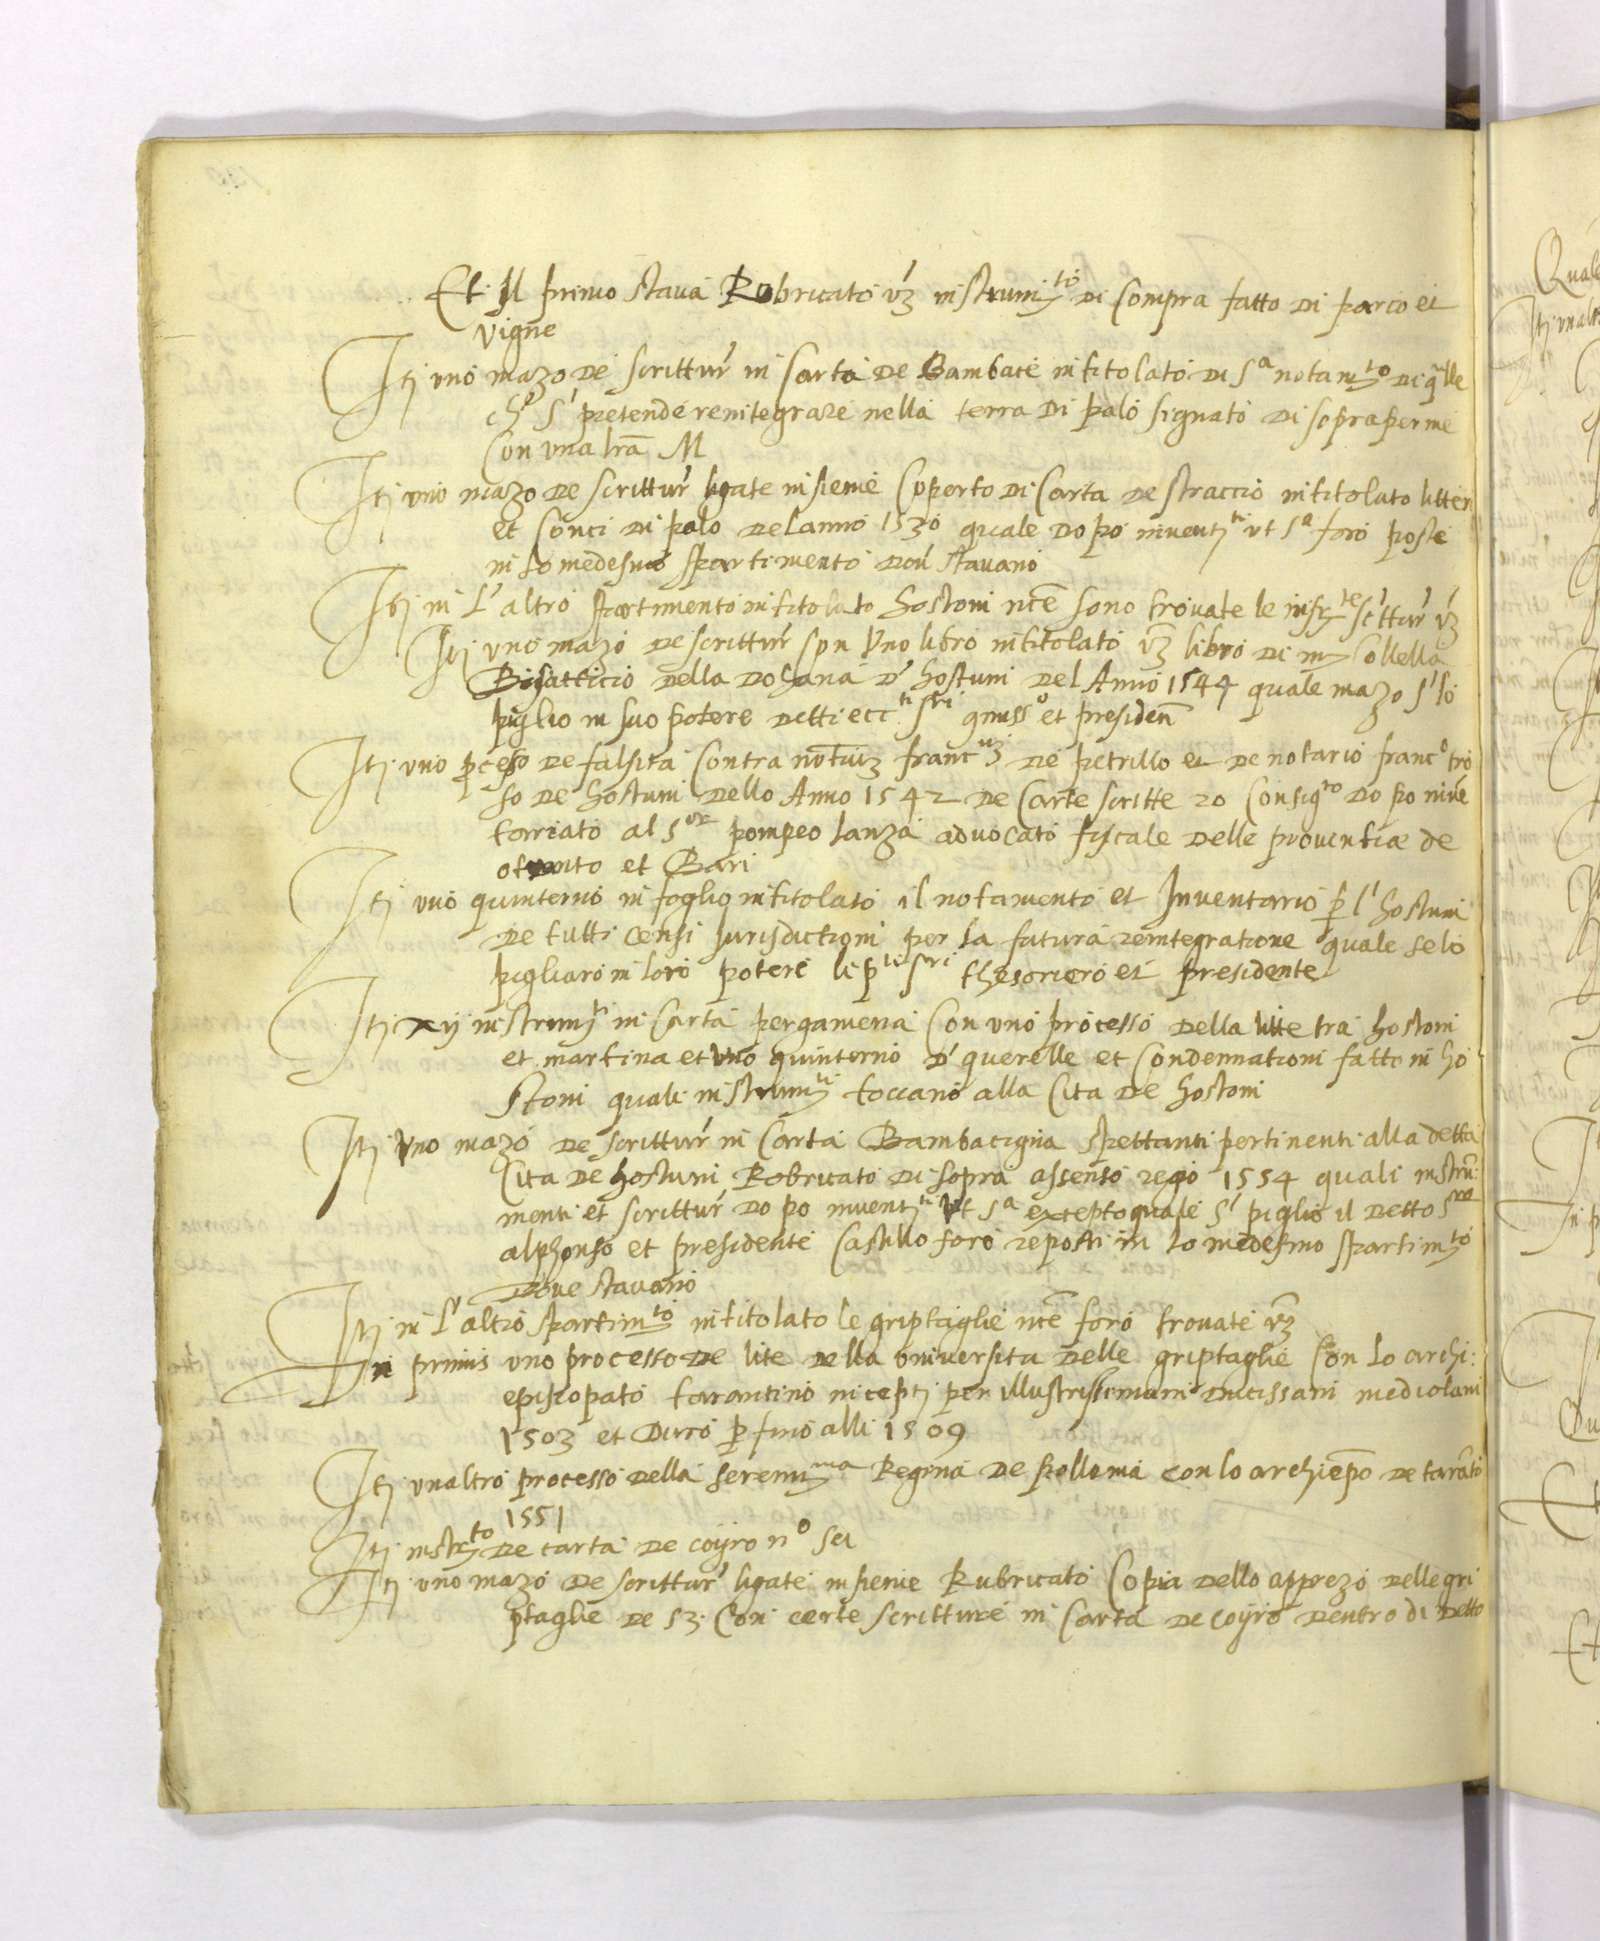 Et il primo stava Robricato vz instrum.to di compra fatto di parco et
vigne
Itj uno mazo de scrittur' in carta de Bambace intitolato di s.a notam.to di q.lle
ch' s' pretende reintegrare nella terra di palo signato di sopra per me
con una lra M
Itj uno mazo de scrittur' ligate insieme coperto di carta de straccio intitolato litter
et conci di palo del anno 1530 quale dopo inventj.ti ut s.a foro poste
in lo medesmo spartimento dov' stavano
Itj in l'altro spartimento intitolato hostoni nce sono trovate le infr.te sc'ttur' vz
Itj uno mazo de scrittur' con uno libro intitolato vz libro di m Collella
Bisatticio della dohana d' hostuni del Anno 1544 quale mazo s' lo
piglio in suo potere detti ecc.ti s.ri et presiden
Itj uno pcesso de falsita contra de petrillo et de notario franc.o tro
so de hostuni dello Anno 1542 de carte scritte 20 consig.to dopo inve
tariato al s.or pompeo lanza advocato fiscale delle provintiæ de
otranto et Bari
Itj uno quinterno in foglio intitolato il notamento et Inventario p l' hostuni
de tutti censi Jurisdictioni per la futura reintegratione quale se lo
pigliaro in loro potere li p.ti s.ri thesoriero et presidente
Itj xij instrumj.ti in carta pergamena con uno processo della lite tra hostoni
et martina et uno quinterno d' querelle et condennationi fatto in ho
stoni quali instrum.ti toccano alla cita de hostoni
Itj uno mazo de scrittur' in carta Bambacigna spettanti pertinenti alla detta
cita de hostuni Robricato di sopra assenso regio 1554 quali instru
menti et scrittur' dopo inventj.ti ut s.a excepto quale s' piglio il detto s.re
alphonso et presidente Castillo foro reposti in lo medesmo spartim.to
dove stavano
Itj in l'altro spartim.to intitolato le griptaglie nce foro trovate vz
In primis uno processo de lite della universita delle griptaglie con lo archi:
episcopato tarantino inceptj per illustrissimam ducissam mediolani
1503 et duro p fino alli 1509
Itj unaltro processo della serenij.ma Regina de pollonia con lo archiepo de tarato
1551
Itj instr.to de carta de coyro n.o sei
Itj uno mazo de scrittur' ligate insieme Rubricato Copia dello apprezo delle gri
ptaglie de 53. con certe scritture in carta de coyro dentro di detto